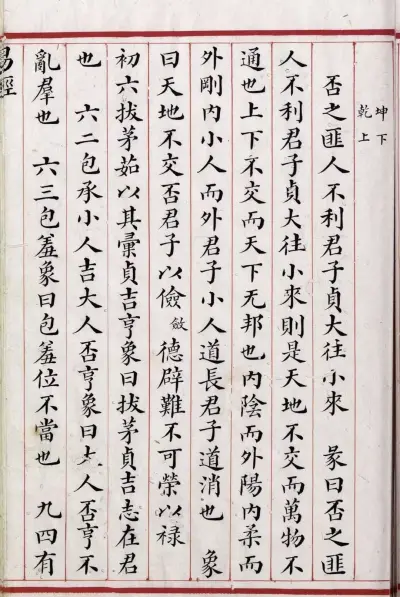 坤下
乾上
否之匪人不利君子貞大往小來　彖曰否之匪
人不利君子貞大往小來則是天地不交而萬物不
通也上下不交而天下无邦也内陰而外陽内柔而
外剛内小人而外君子小人道長君子道消也　象
曰天地不交否君子以儉斂德辟難不可榮以禄
初六拔茅茹以其彙貞吉亨象曰拔茅貞吉志在君
也　六二包承小人吉大人否亨象曰大人否亨不
亂羣也　六三包羞象曰包羞位不當也　九四有
易經